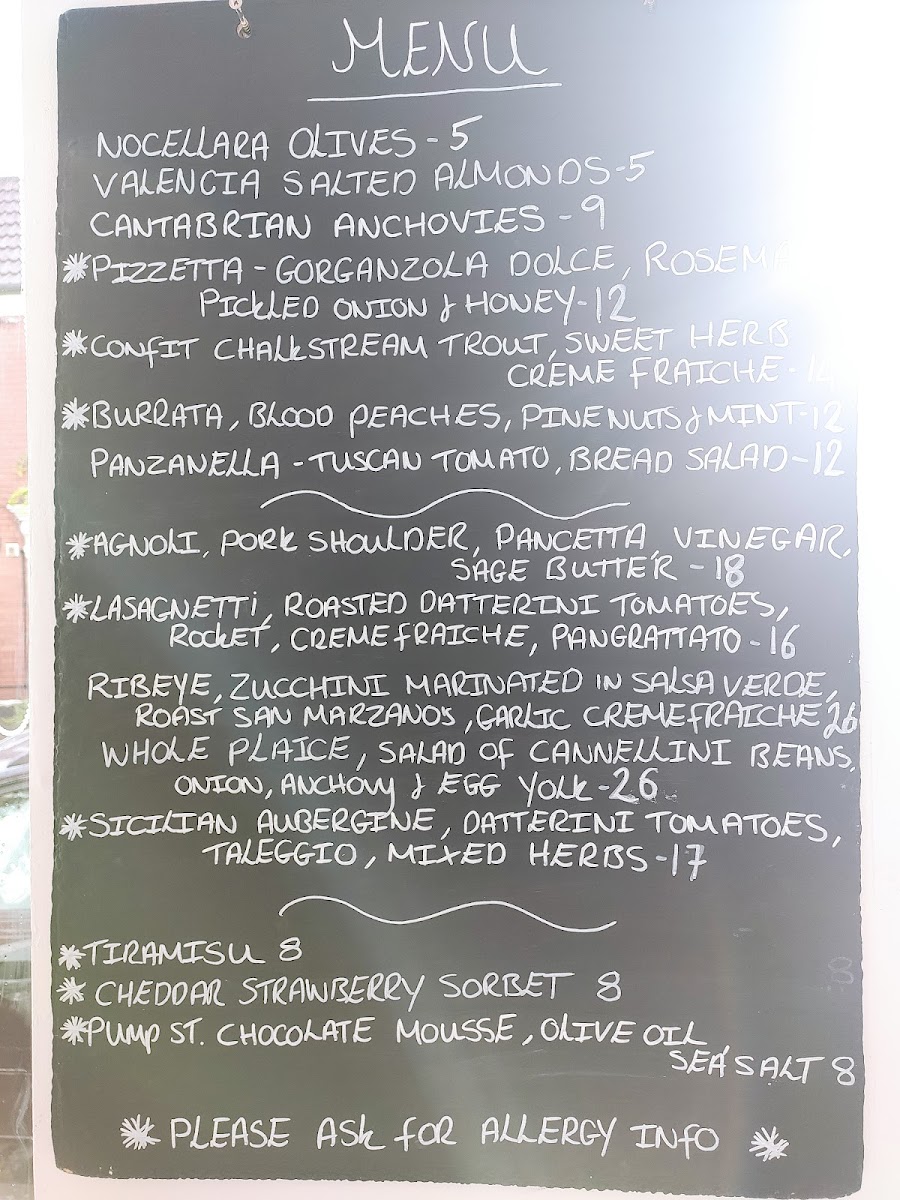 MENU
NOCELLARA OLIVES - 5
VALENCIA SALTED ALMONDS - 5
CANTABRIAN ANCHOVIES - 9
*PIZZETTA - GORGANZOLA DOLCE, ROSEMA
PICKLED ONION & HONEY - 12
*CONFIT CHALKSTREAM TROUT, SWEET HERB
CREME FRAICHE -
*BURRATA, BLOOD PEACHES, PINENUTS & MINT - 12
PANZANELLA - TUSCAN TOMATO, BREAD SALAD - 12
*AGNOLI, PORK SHOULDER, PANCETTA, VINEGAR,
SAGE BUTTER - 18
*LASAGNETTi, ROASTED DATTERINI TOMATOES,
ROCKET, CREME FRAICHE, PANGRATTATO - 16
RIBEYE, ZUCCHINI MARINATED IN SALSA VERDE,
ROAST SAN MARZANO'S, GARLIC CREME FRAICHE 26
WHOLE PLAICE, SALAD OF CANNELLINI BEANS,
ONION, ANCHOVY & EGG YOLK - 26
*SICILIAN AUBERGINE, DATTERINI TOMATOES,
TALEGGIO, MIXED HERBS - 17
*TIRAMISU 8
* CHEDDAR STRAWBERRY SORBET 8
*PUMP ST. CHOCOLATE MOUSSE, OLIVE OIL
SEA SALT 8
* PLEASE ASK FOR ALLERGY INFO *